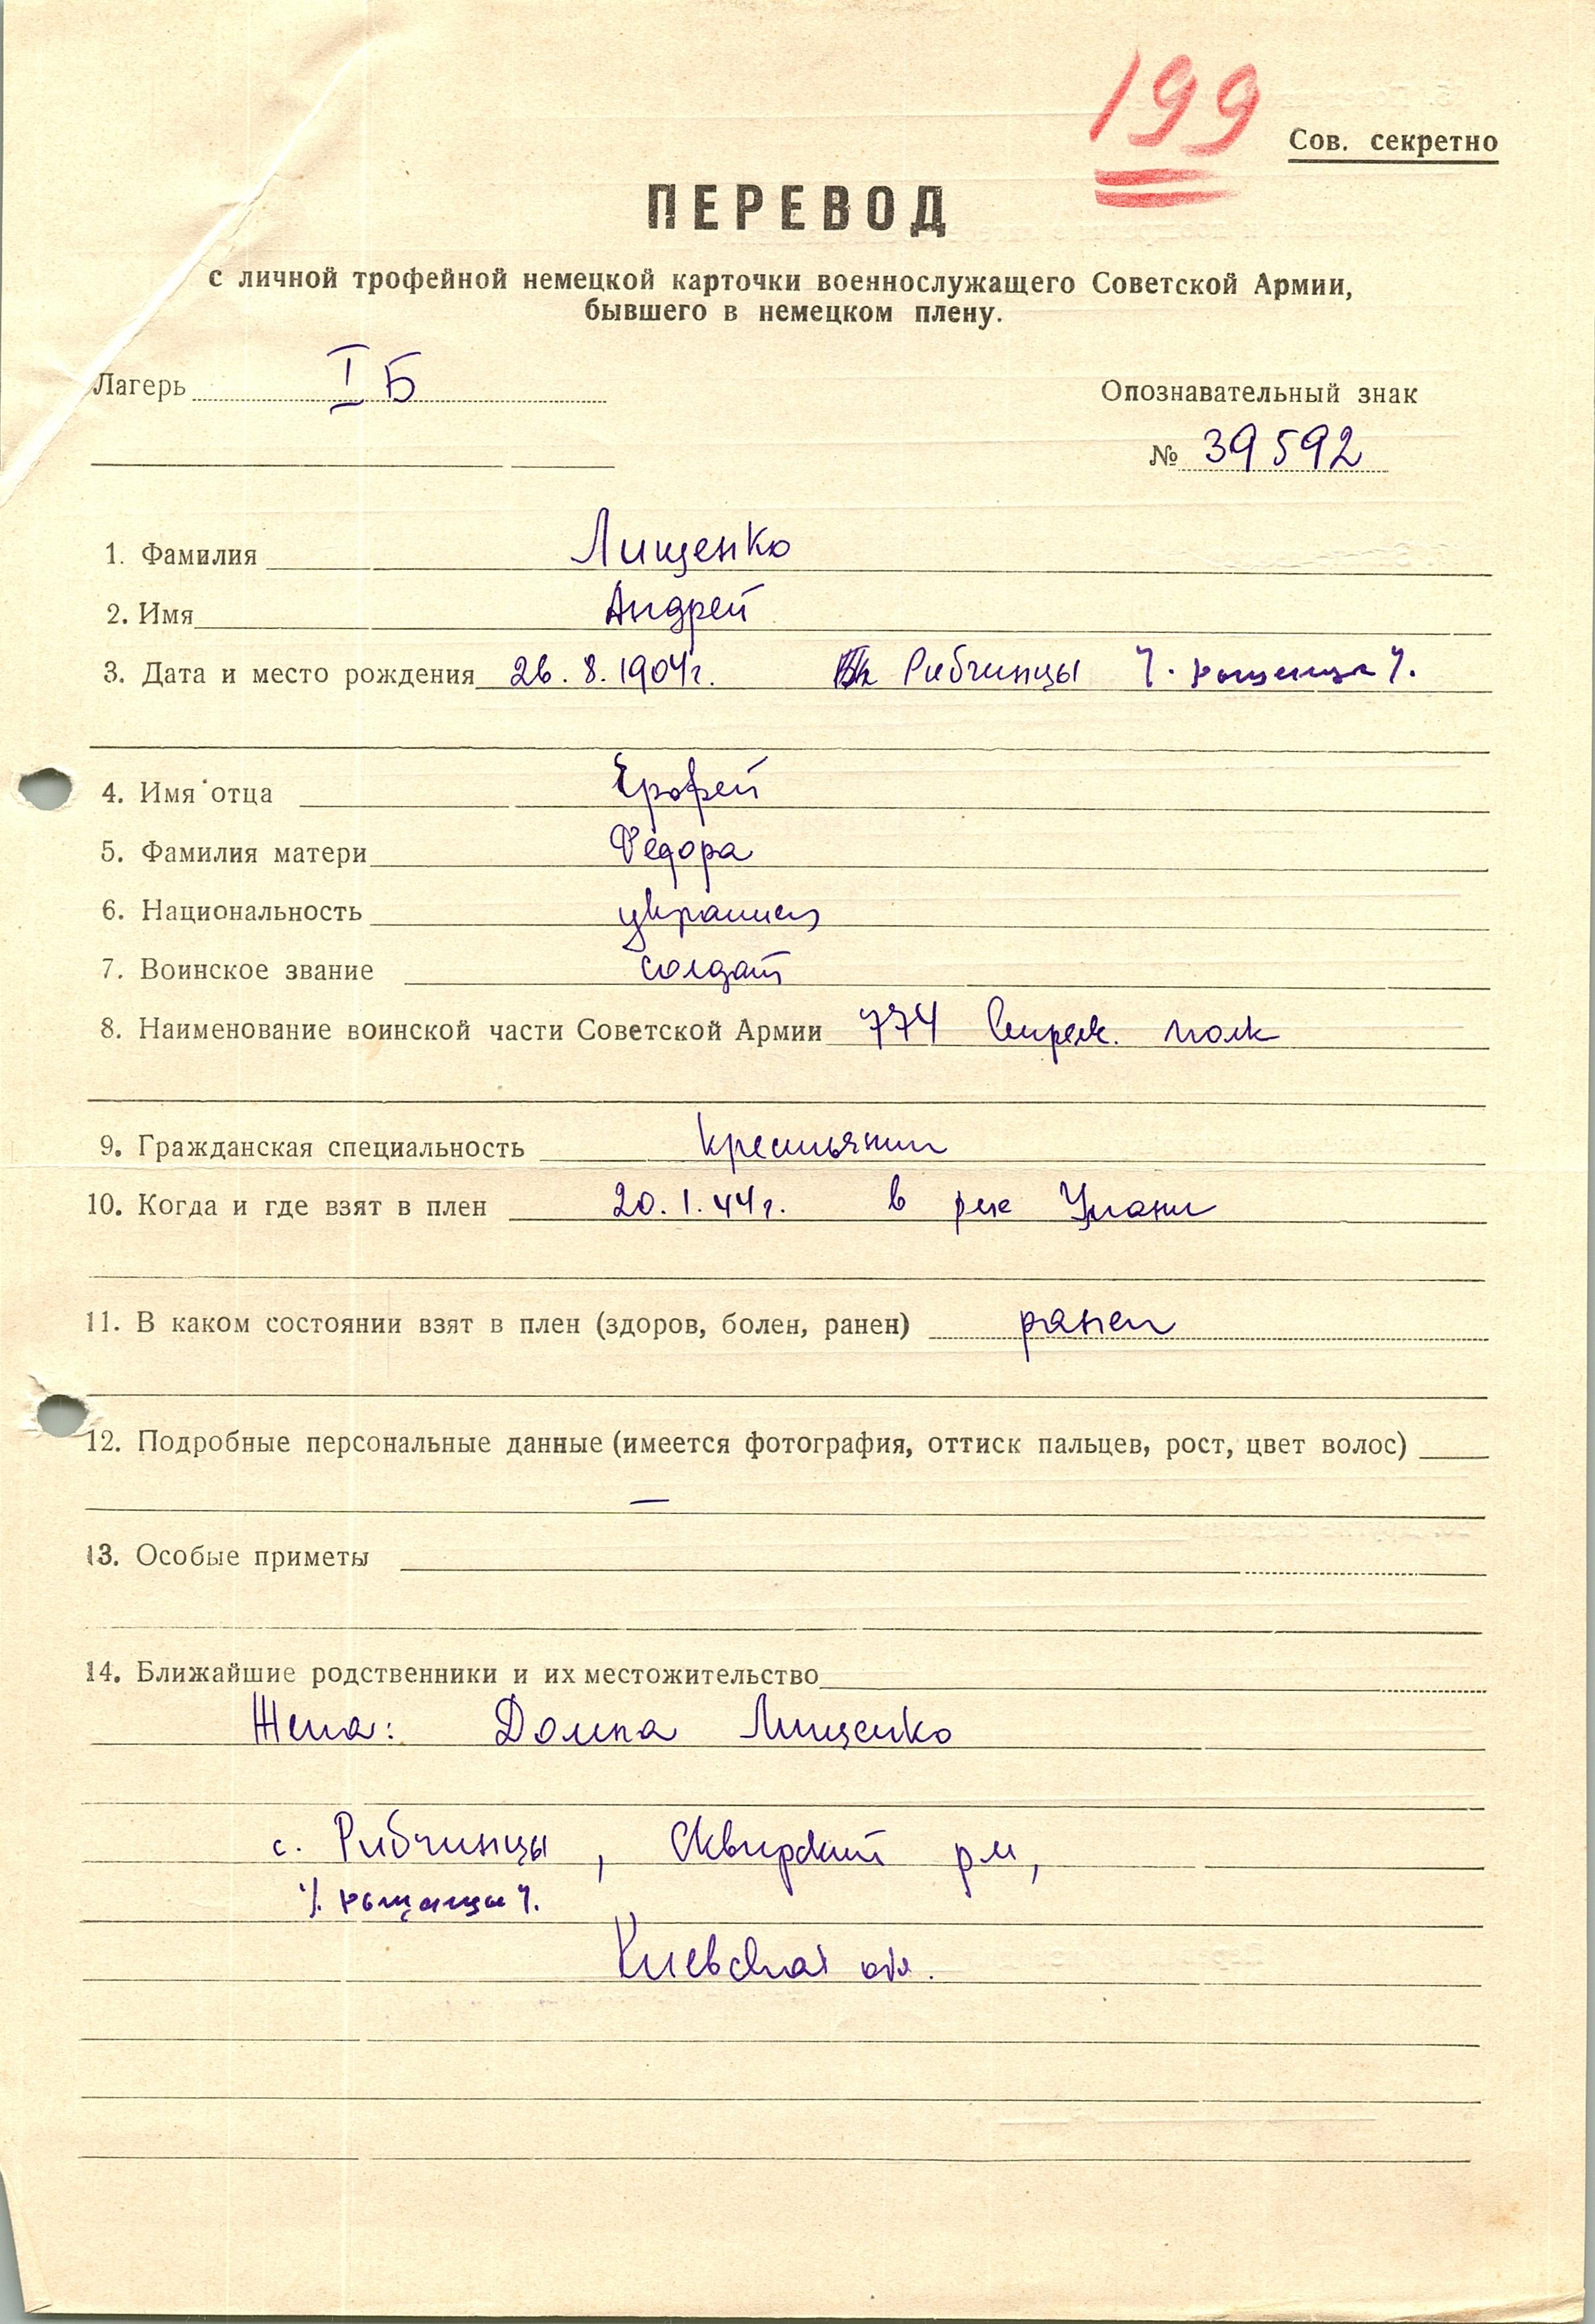 199
Сов. секретно
ПЕРЕВОД
с личной трофейной немецкой карточки военнослужащего Советской Армии,
бывшего в немецком плену.
Лагерь I Б
Опознавательный знак
№ 39592
1. Фамилия Лищенко
2. Имя Андрей
3. Дата и место рождения 26.8.1904г. Рибчинцы
4. Имя отца Ерофей
5. Фамилия матери Федора
6. Национальность украинец
7. Воинское звание солдат
8. Наименование воинской части Советской Армии 774 Стрелк. полк
9. Гражданская специальность крестьянин
10. Когда и где взят в плен 20.1.44г. в р-не Умани
11. В каком состоянии взят в плен (здоров, болен, ранен) ранен
12. Подробные персональные данные (имеется фотография, оттиск пальцев, рост, цвет волос)
—
13. Особые приметы
14. Ближайшие родственники и их местожительство
Жена: Домна Лищенко
с. Рибчинцы, Сквирский р-н,
Киевская обл.